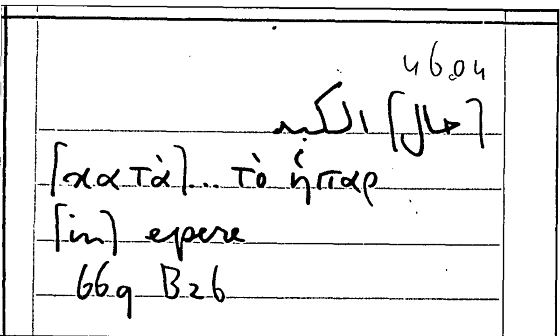 46.04
[حال] الكبد
[κατὰ]... τὸ ἧπαρ
[in] epere
669 B26